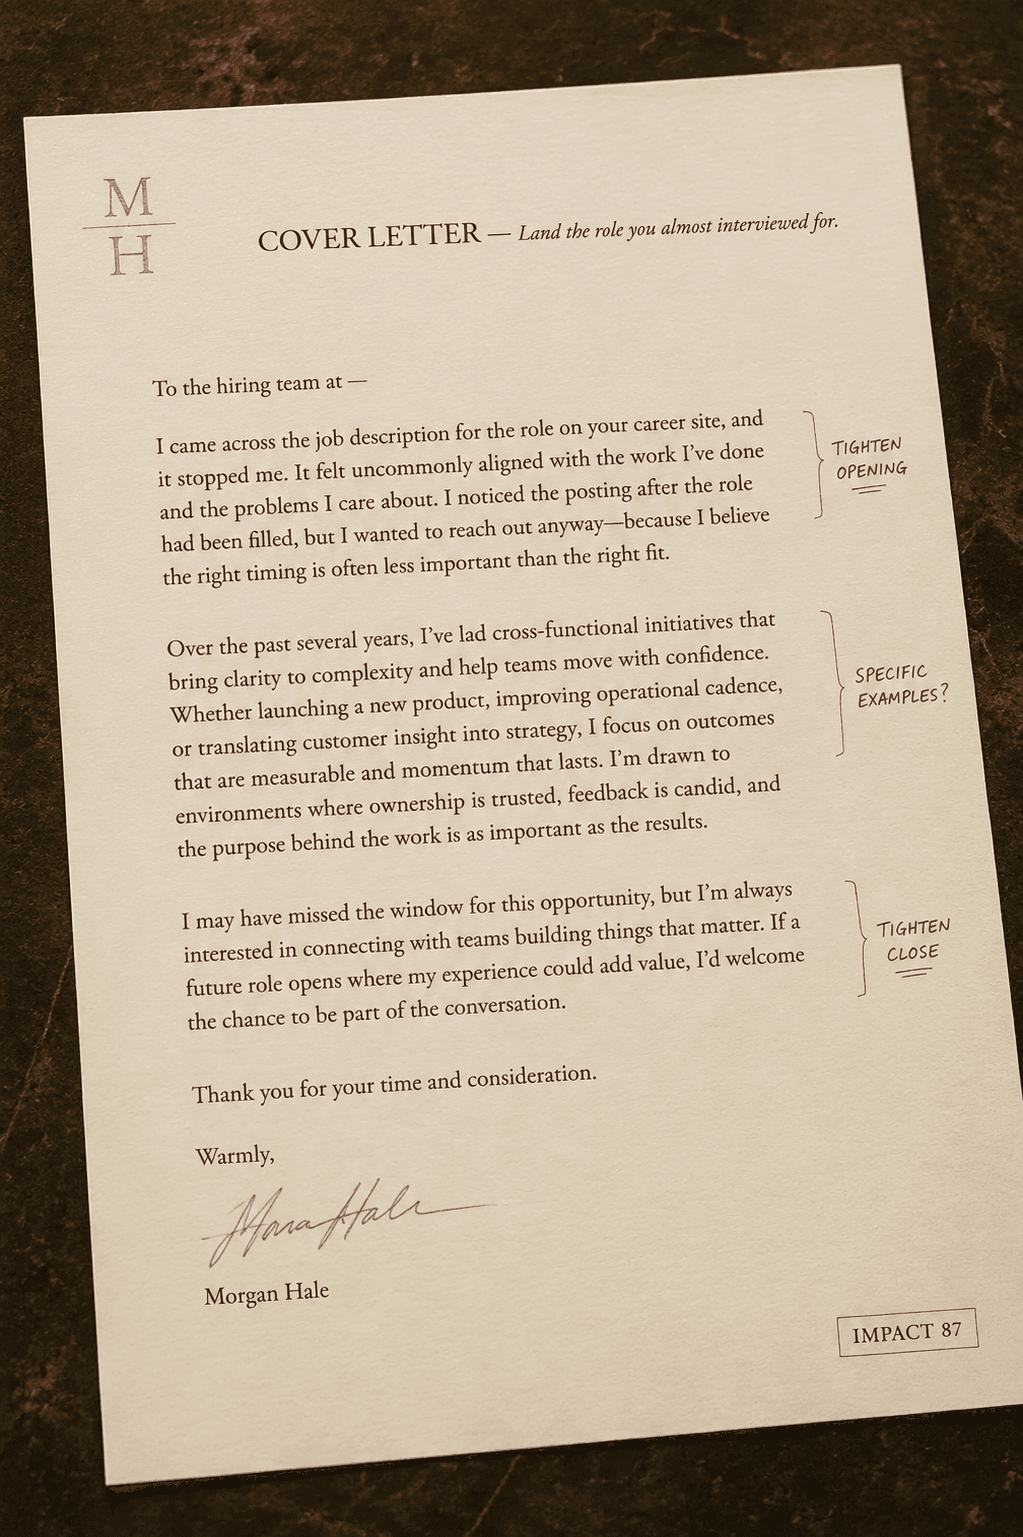 M
H
COVER LETTER — Land the role you almost interviewed for.
To the hiring team at —
I came across the job description for the role on your career site, and
it stopped me. It felt uncommonly aligned with the work I've done
and the problems I care about. I noticed the posting after the role
had been filled, but I wanted to reach out anyway—because I believe
the right timing is often less important than the right fit.
TIGHTEN
OPENING
Over the past several years, I've lad cross-functional initiatives that
bring clarity to complexity and help teams move with confidence.
Whether launching a new product, improving operational cadence,
or translating customer insight into strategy, I focus on outcomes
that are measurable and momentum that lasts. I'm drawn to
environments where ownership is trusted, feedback is candid, and
the purpose behind the work is as important as the results.
SPECIFIC
EXAMPLES?
I may have missed the window for this opportunity, but I'm always
interested in connecting with teams building things that matter. If a
future role opens where my experience could add value, I'd welcome
the chance to be part of the conversation.
TIGHTEN
CLOSE
Thank you for your time and consideration.
Warmly,
Mora Hale
Morgan Hale
IMPACT 87